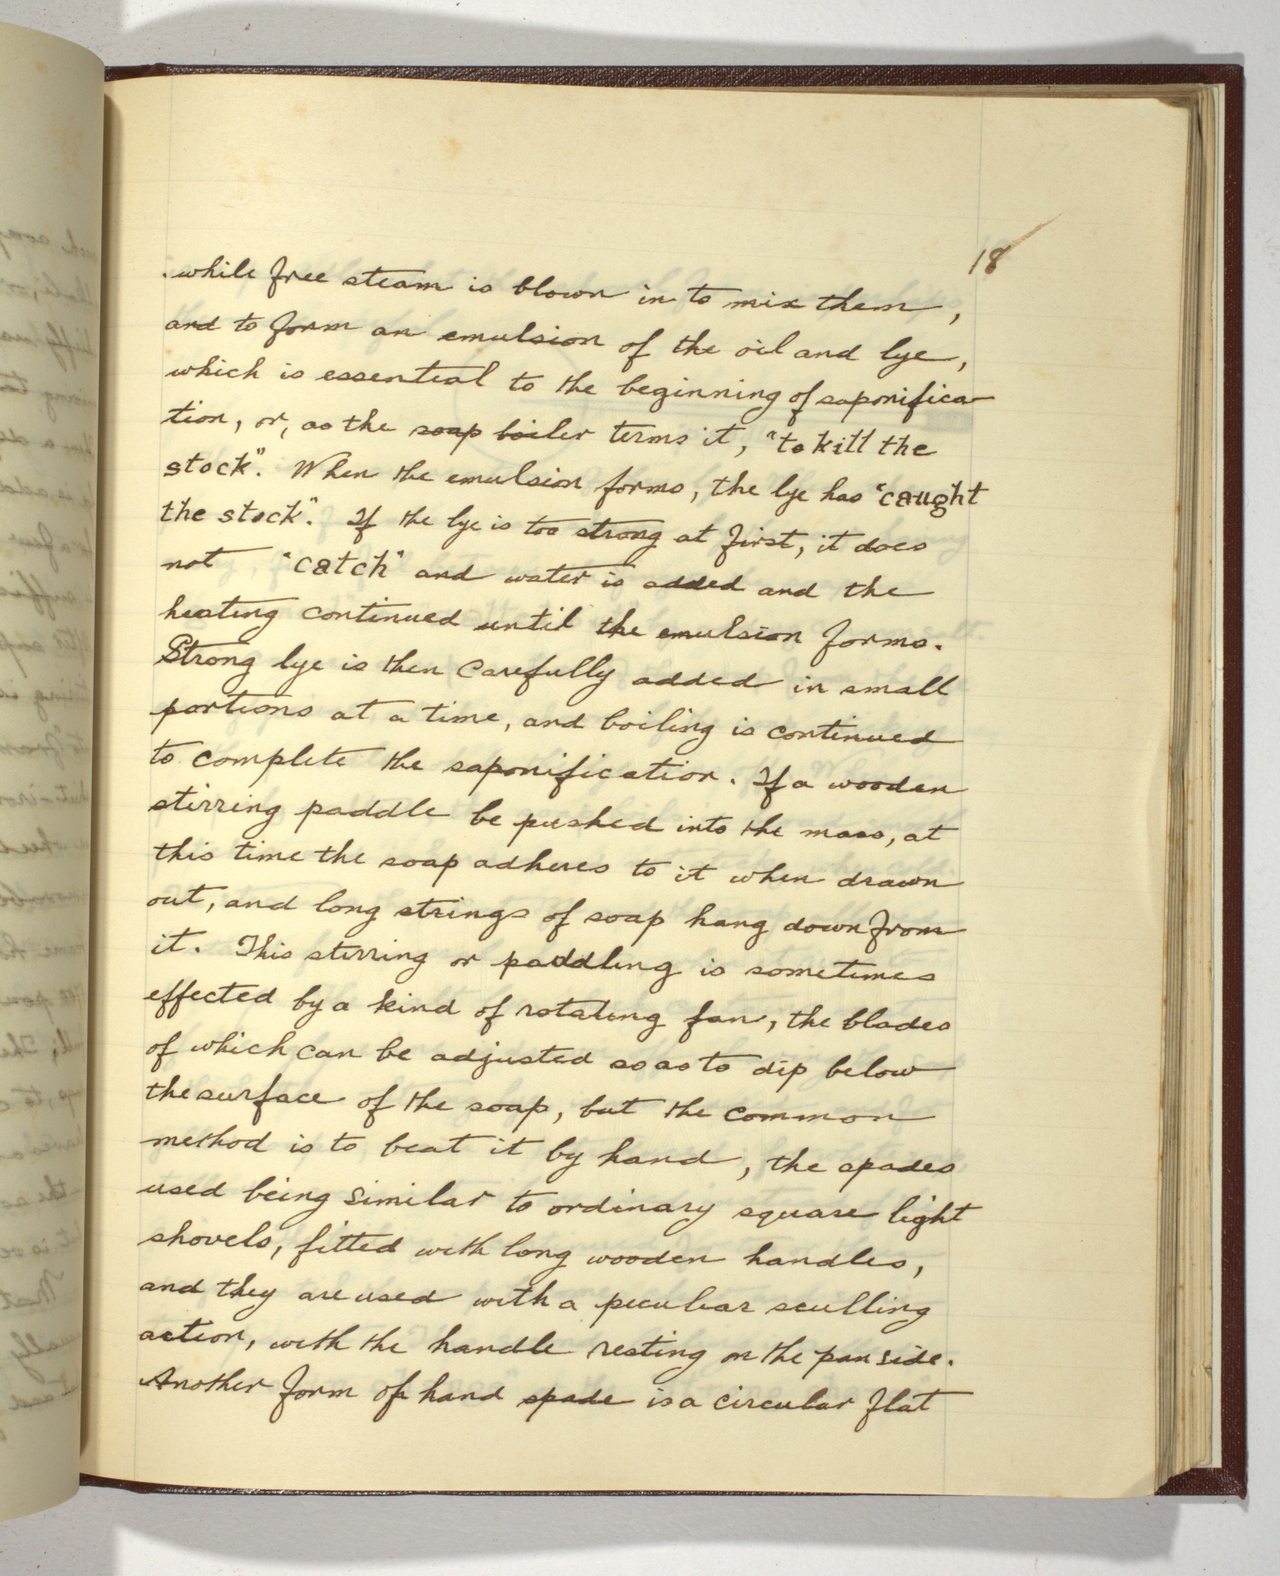 18
while free steam is blown in to mix them,
and to form an emulsion of the oil and lye,
which is essential to the beginning of saponifica-
tion, or, as the soap boiler terms it, "to kill the
stock". When the emulsion forms, the lye has "caught
the stock". If the lye is too strong at first, it does
not "catch" and water is added and the
heating continued until the emulsion forms.
Strong lye is then carefully added in small
portions at a time, and boiling is continued
to complete the saponification. If a wooden
stirring paddle be pushed into the mass, at
this time the soap adheres to it when drawn
out, and long strings of soap hang down from
it. This stirring or paddling is sometimes
effected by a kind of rotating fan, the blades
of which can be adjusted so as to dip below
the surface of the soap, but the common
method is to beat it by hand, the spades
used being similar to ordinary square light
shovels, fitted with long wooden handles,
and they are used with a peculiar sculling
action, with the handle resting on the pan side.
Another form of hand spade is a circular flat